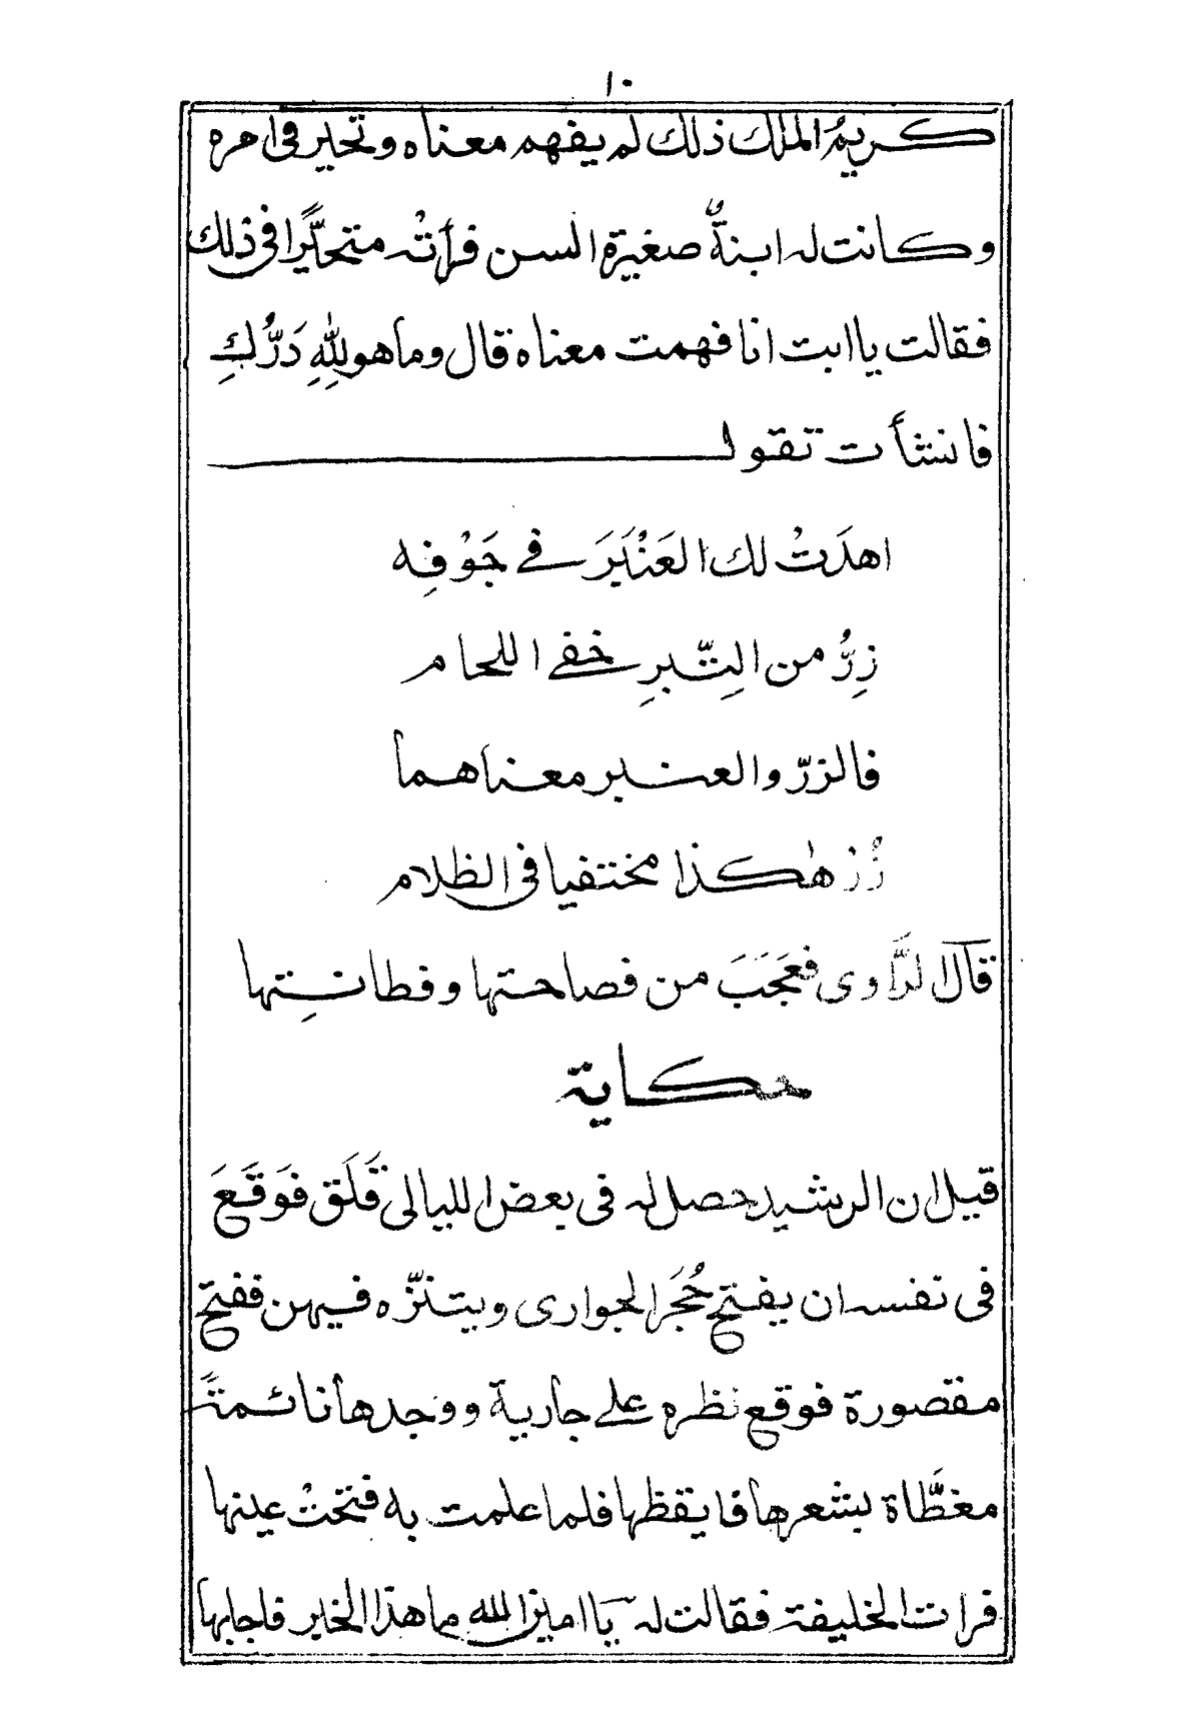 ١٠
كريمُ الملك ذلك لم يفهم معناه وتحير في امره
وكانت له ابنةٌ صغيرة السن فرأتْه متحيّرًا في ذلك
فقالت يا ابت انا فهمت معناه قال وما هو للهِ دَرُّكِ
فانشأت تقول
اهدَتْ لك العَنْبَرَ في جَوْفِه
زِرُّ من التِّبرِ خفي اللحام
فالزرّ والعنبر معناهما
زُر هٰكذا مختفيا في الظلام
قال الرَّاوى فعَجَبَ من فصاحتها وفطانتِها
حكاية
قيل ان الرشيد حصل له فى بعض الليالى قَلَق فَوَقَعَ
فى نفسه ان يفتح حُجَر الجوارى ويتنزّه فيهن ففتح
مقصورة فوقع نظره على جارية ووجدها نائمةً
مغطَّاة بشعرها فايقظها فلما علمت به فتحتْ عينها
فرات الخليفة فقالت له يا امين الله ما هذا الخبر فاجابها